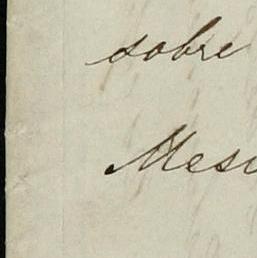 sobre
Mesi